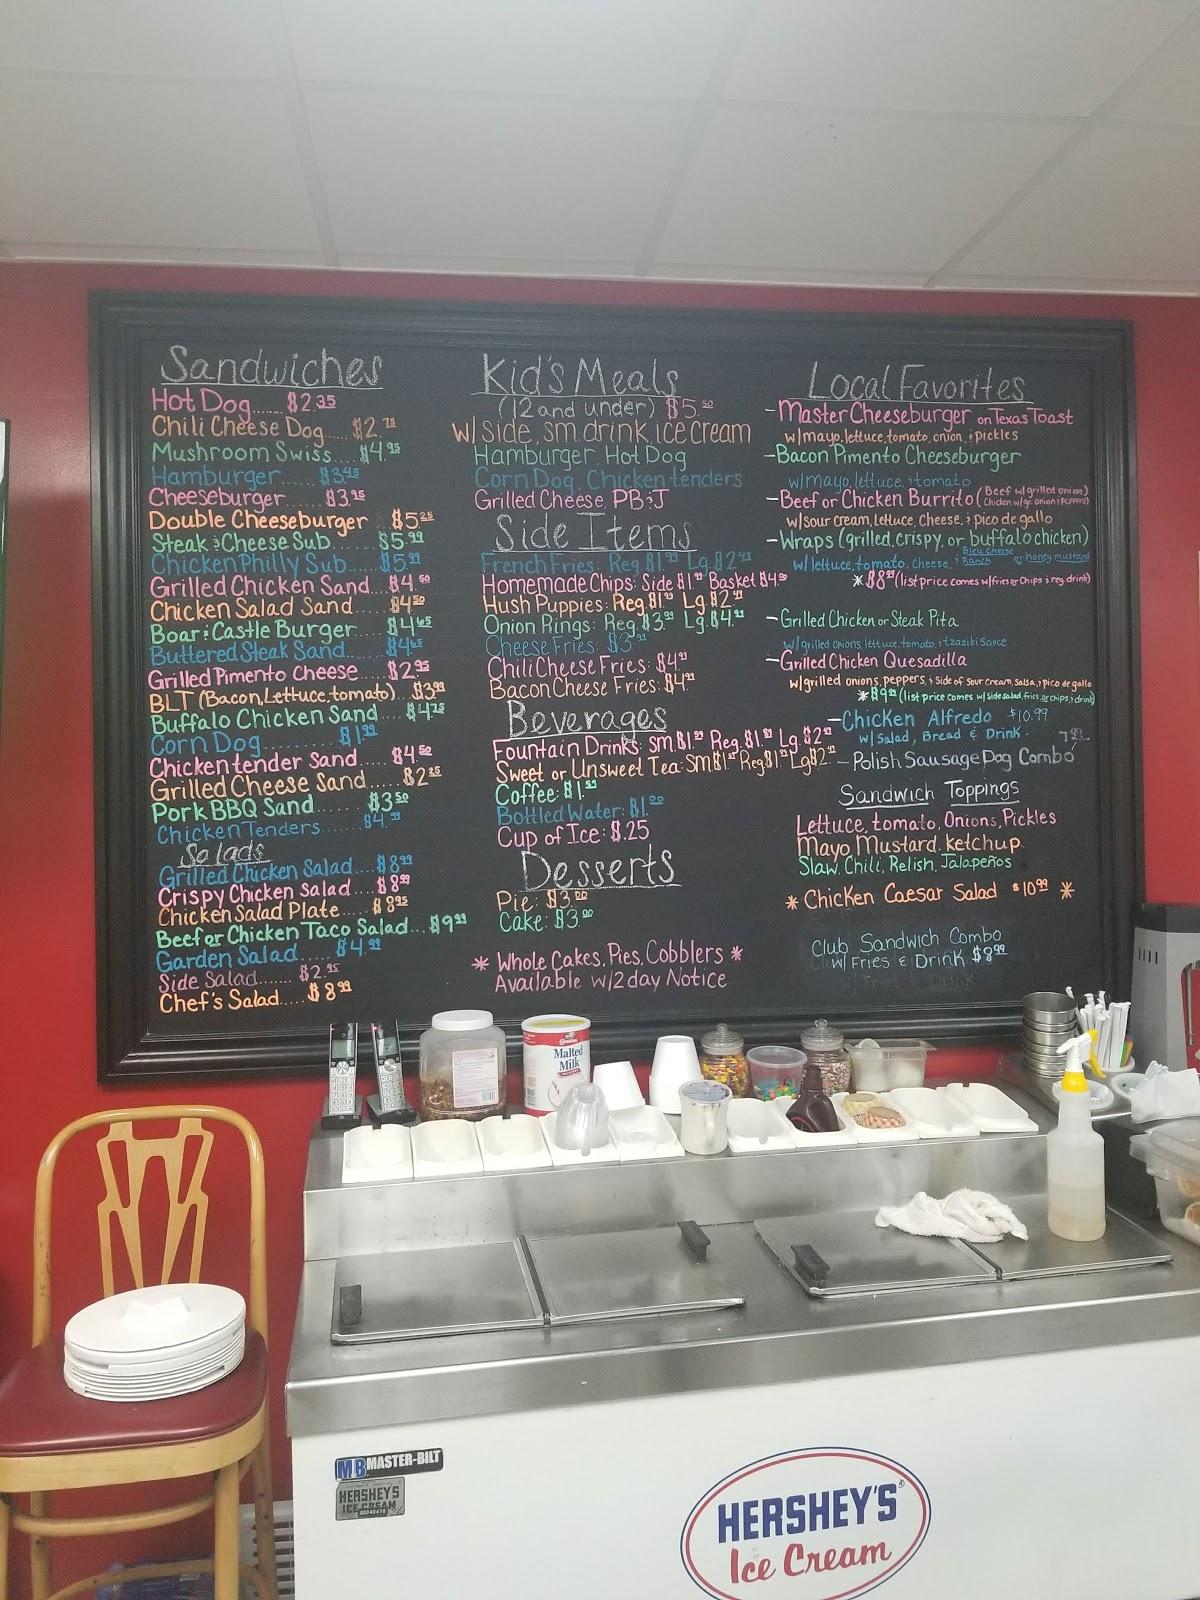 Sandwiches
Hot Dog...... $2.35
Chili Cheese Dog.... $2.75
Mushroom Swiss.....$4.95
Hamburger...... $3.45
Cheeseburger $3.95
Double Cheeseburger $5.25
Steak & Cheese Sub..... $5.99
Chicken Philly Sub..... $5.99
Grilled Chicken Sand.... $4.50
Chicken Salad Sand $4.50
Boar & Castle Burger..... $4.65
Buttered Steak Sand..... $4.65
Grilled Pimento Cheese..... $2.95
BLT (Bacon, Lettuce, tomato)... $3.99
Buffalo Chicken Sand.... $4.75
Corn Dog............ $1.99
Chicken tender Sand.... $4.50
Grilled Cheese Sand..... $2.25
Pork BBQ Sand...... $3.50
Chicken Tenders....... $4.99
Salads
Grilled Chicken Salad... $8.99
Crispy Chicken Salad... $8.99
Chicken Salad Plate.... $8.95
Beef or Chicken Taco Salad... $9.99
Garden Salad..... $4.99
Side Salad..... $2.95
Chef's Salad.... $8.99
Kid's Meals
(12 and under) $5.50
w/ side, sm. drink, ice cream
Hamburger, Hot Dog
Corn Dog, Chicken tenders
Grilled Cheese, PB&J
Side Items
French Fries: Reg. $1.99 Lg. $2.49
Homemade Chips: Side $1.99 Basket $4.00
Hush Puppies: Reg. $1.99 Lg. $2.99
Onion Rings: Reg. $3.99 Lg. $4.99
Cheese Fries: $3.99
Chili Cheese Fries: $4.99
Bacon Cheese Fries: $4.99
Beverages
Fountain Drinks: Sm. $1.59 Reg. $1.89 Lg. $2.09
Sweet or Unsweet Tea: Sm. Reg. Lg.
Coffee: $1.59
Bottled Water: $1.00
Cup of Ice: $.25
Desserts
Pie: $3.00
Cake: $3.00
* Whole Cakes, Pies, Cobblers *
Available w/ 2 day Notice
Local Favorites
- Master Cheeseburger on Texas Toast
w/ mayo, lettuce, tomato, onion, & pickles
- Bacon Pimento Cheeseburger
w/ mayo, lettuce, & tomato
- Beef or Chicken Burrito (Beef w/ grilled onion) (Chicken w/ gr. onion & peppers)
w/ sour cream, lettuce, cheese, & pico de gallo
- Wraps (grilled, crispy, or buffalo chicken)
w/ lettuce, tomato, cheese, & Bleu cheese Ranch or honey mustard
* $8.99 (list price comes w/ fries or chips & reg. drink)
- Grilled Chicken or Steak Pita
w/ grilled onions, lettuce, tomato, & tzaziki sauce
- Grilled Chicken Quesadilla
w/ grilled onions, peppers, & side of sour cream, salsa, & pico de gallo
* $9.99 (list price comes w/ side salad, fries, or chips, & drink)
- Chicken Alfredo $10.99
w/ Salad, Bread & Drink
- Polish Sausage Dog Combo 7.99
Sandwich Toppings
Lettuce, tomato, Onions, Pickles
Mayo, Mustard, ketchup
Slaw, Chili, Relish, Jalapeños
* Chicken Caesar Salad $10.99 *
Club Sandwich Combo
w/ Fries & Drink $8.99
w/ Fries & Drink
Carnation
Malted
Milk
MB MASTER-BILT
HERSHEY'S
ICE CREAM
HERSHEY'S®
Ice Cream